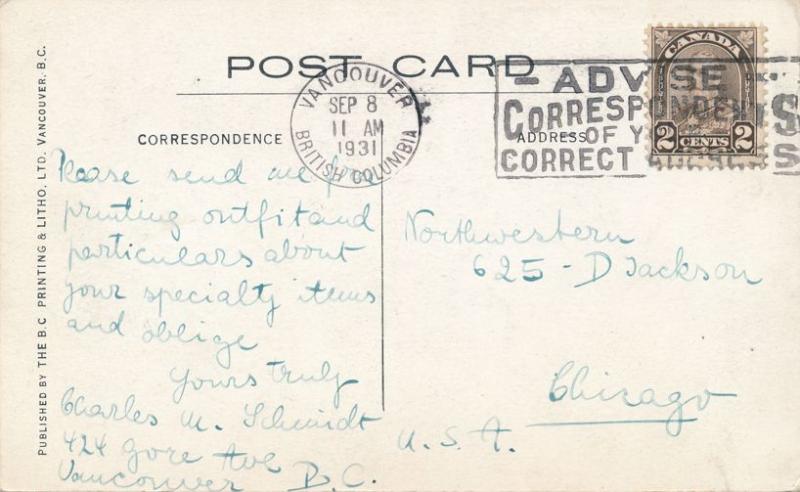 POST CARD
VANCOUVER
SEP 8
11 AM
1931
BRITISH COLUMBIA
ADVISE
CORRESPONDENTS
OF
CORRECT
CANADA
2 CENTS 2
CORRESPONDENCE
ADDRESS
Please send me free
printing outfit and
particulars about
your specialty items
and oblige
Yours truly
Charles M. Schmidt
424 Gore Ave
Vancouver B.C.
Northwestern
625 - D Jackson
Chicago
U.S.A.
PUBLISHED BY THE B.C PRINTING & LITHO. LTD. VANCOUVER. B.C.